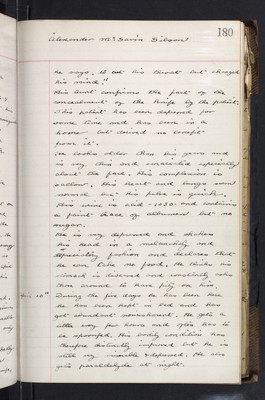 Alexander McGavin Gibson
180
he says, to cut his throat but changed
his mind!!
His Aunt confirms the fact of the
concealment of the knife by the patient.
This patient has been depressed for
some time and has been in a
home but derived no benefit
from it.
He looks older than his years and
is very thin and emaciated especially
about the face. His complexion is
sallow. His heart and lungs seem
normal but his pulse is quick.
His urine is acid - 1030. and contains
a faint trace of albumen but no
sugar.
He is very depressed and shakes
his head in a melancholy and
fashion and declares that
he can take no food. He thinks his
is and constantly asks
those around to have pity on him.
10th During the few days he has been here
he has been kept in bed and has
got abundant nourishment. He gets a
every few hours and often has to
be spoonfed. His bodily condition has
therefore distinctly improved but he is
still very miserable & depressed. He also
gets paraldehyde at night.